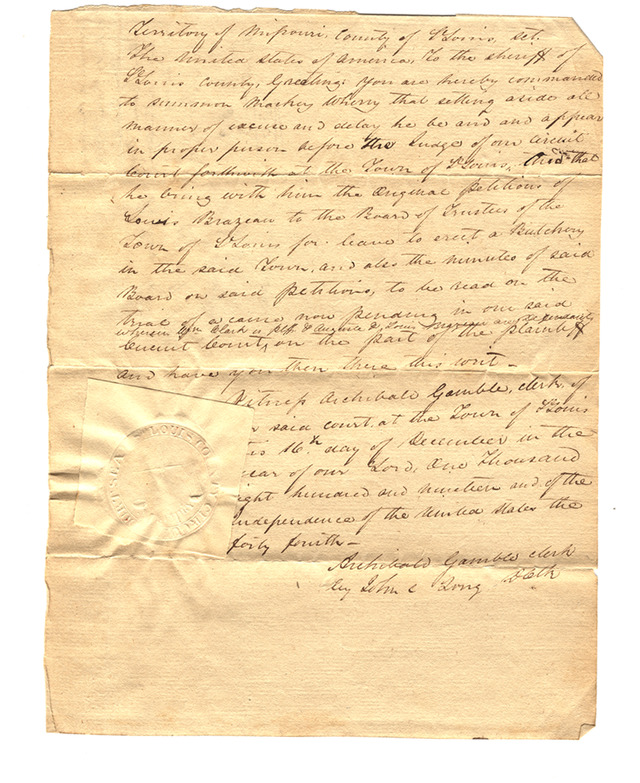 Territory of Missouri, County of St Louis, Sct.
The United States of America, To the sheriff of
St Louis County, Greeting: You are hereby commanded
to summon Mackey Wherry that setting aside all
manner of excuse and delay he be and and appear
in proper person before the Judge of our Circuit
Court forthwith at the Town of St Louis, And that
he bring with him the Original Petitions of
Louis Brazeau to the Board of Trustees of the
Town of St Louis for leave to erect a Butchery
in the said Town, and also the minutes of said
Board on said Petitions, to be read on the
trial of a cause now pending in our said
wherein Wm Clark is plff & Auguste & Louis Brazeau are defendants
Circuit Court, on the part of the plaintiff
and have you then there this writ —
Witness Archibald Gamble, clerk of
said court, at the Town of St Louis
16th day of December in the
year of our Lord, One Thousand
eight hundred and nineteen and of the
Independence of the United States the
forty fourth —
Archibald Gamble clerk
by John C Long D Clk
ST LOUIS CO